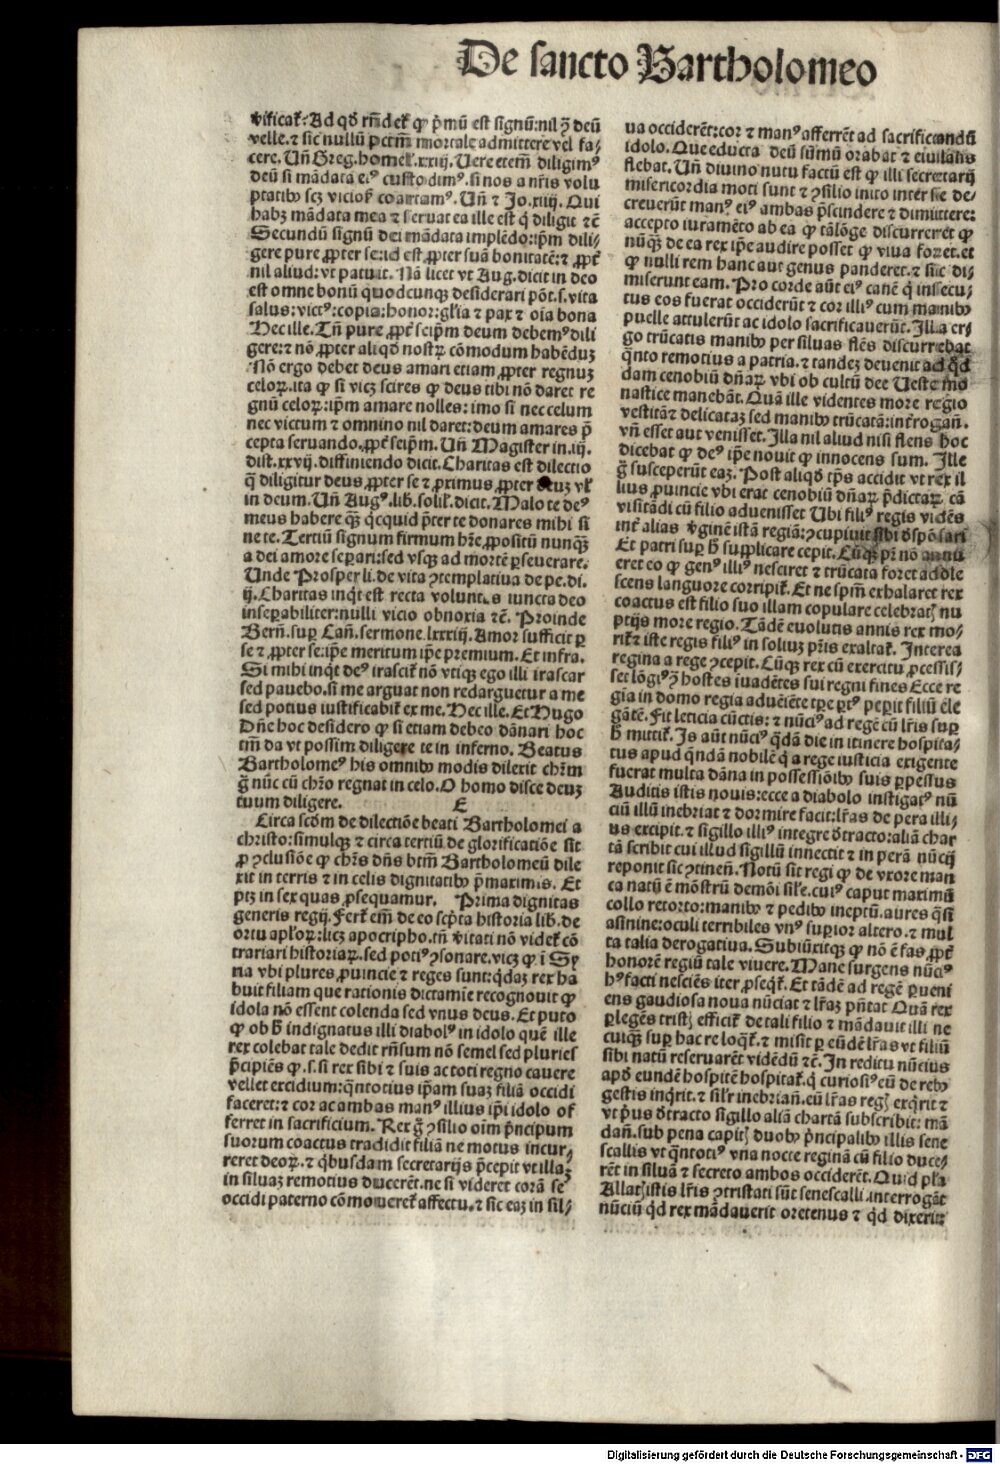 De sancto Bartholomeo
vificaẗ. Ad qđ rñdeẗ ꝙ p̄mū est signū: nil ꝯ̄ deū
velle. ⁊ sic nullū pctm̄ mortale admittere vel fa-
cere. Uñ Greg. homel. xxiij. Uere etem̄ diligimꝰ
deū si mādata eiꝰ custodimꝰ. si nos a nr̄is volu
ptatibꝰ scꝫ vicioẗ coartamꝰ. Uñ ⁊ Jo. xiiij. Qui
habꝫ mādata mea ⁊ seruat ea ille est q̇ diligit ⁊c̄
Secundū signū dei mādata implēdo: ip̄m dili-
gere pure ꝓpter se: id est ꝓpter suā bonitatē: ⁊ ꝓpt̄
nil aliud: vt patuit. Nā licet vt Aug. dicit in deo
est omne bonū quodcunqꝫ desiderari pōt. s. vita
salus: victꝰ: copia: honor: gl̄ia ⁊ pax ⁊ oīa bona
Hec ille. Tñ pure ꝓpt̄ seip̄m deum debemꝰ dili
gere: ⁊ nō ꝓpter aliqđ nostꝝ cōmodum habēduꝫ
Nō ergo debet deus amari etiam ꝓpter regnuꝫ
celoꝝ. ita ꝙ si vicꝫ scires ꝙ deus tibi nō daret re
gnū celoꝝ: ip̄m amare nolles: imo si nec celum
nec victum ⁊ omnino nil daret: deum amares p̄
cepta seruando. ꝓpt̄ seip̄m. Uñ Magister in. iij.
dist. xxvij. diffiniendo dicit. Charitas est dilectio
q̄ diligitur deus ꝓpter se ⁊ ꝓximus ꝓpter deuꝫ vl̄
in deum. Uñ Augꝰ. lib. solil. dicit. Malo te deꝰ
meus habere qꝫ q̇cquid p̄ter te donares mihi si
ne te. Tertiū signum firmum hr̄e ꝓpositū nunqꝫ
a dei amore seꝑari: sed vsqꝫ ad mortē ꝑseuerare.
Unde Prosper li. de vita ꝯtemplatiua de pe. di.
ij. Charitas inq̇t est recta voluntas iuncta deo
inseꝑabiliter: nulli vicio obnoxia ⁊c̄. Proinde
Berñ. suꝑ Cañ. sermone. lxxxiij. Amor sufficit ꝑ
se ⁊ ꝓpter se: ip̄e meritum ip̄e premium. Et infra.
Si mihi inq̇t deꝰ irasciẗ nō vtiqꝫ ego illi irascar
sed pauebo. si me arguat non redarguetur a me
sed potius iustificabiẗ ex me. Hec ille. Et Hugo
Dñe hoc desidero ꝙ si etiam debeo dānari hoc
tm̄ da vt possim diligere te in inferno. Beatus
Bartholomeꝰ his omnibꝰ modis dilexit chr̄m
g̊ nūc cū chr̄o regnat in celo. O homo disce deuꝫ
tuum diligere.
E
Circa scđm de dilectiōe beati Bartholomei a
christo: simulqꝫ ⁊ circa tertiū de glorificatiōe sit
ꝓ ꝯclusiōe ꝙ chr̄s dñs btm̄ Bartholomeū dile
xit in terris ⁊ in celis dignitatibꝰ p̄maximis. Et
ptꝫ in sex quas ꝓsequamur. Prima dignitas
generis regij. Ferẗ em̄ de eo scp̄ta historia lib. de
ortu apl̄oꝝ: licꝫ apocripho. tñ v̇itati nō videẗ cō
trariari historiaꝝ. sed potiꝰ ꝯsonare. vicꝫ ꝙ ī Sy
ria vbi plures ꝓuincie ⁊ reges sunt: q̇daꝫ rex ha
buit filiam que rationis dictamīe recognouit ꝙ
idola nō essent colenda sed vnus deus. Et puto
ꝙ ob h̄ indignatus illi diabolꝰ in idolo quē ille
rex colebat tale dedit rñsum nō semel sed pluries
p̄cipiēs ꝙ. s. si rex sibi ⁊ suis ac toti regno cauere
vellet excidium: q̄ntotius ip̄am suaꝫ filiā occidi
faceret: ⁊ cor ac ambas manꝰ illius ip̄i idolo of
ferret in sacrificium. Rex g̊ ꝯsilio oīm p̄ncipum
suorum coactus tradidit filiā ne motus incur-
reret deoꝝ. ⁊ q̇busdam secretarijs p̄cepit vt illaꝫ
in siluaꝫ remotius ducerēt. ne si videret corā se
occidi paterno cōmoueret̄ affectu. ⁊ sic eaꝫ in sil-
ua occiderēt: cor ⁊ manꝰ afferrēt ad sacrificandū
idolo. Que educta deū sūmū orabat ⁊ eiulatis
flebat. Uñ diuino nutu factū est ꝙ illi secretarij
misericordia moti sunt ⁊ ꝯsilio inito inter se de-
creuerūt manꝰ eiꝰ ambas p̄scindere ⁊ dimittere:
accepto iuramēto ab ea ꝙ tālōge discurreret ꝙ
nūqꝫ de ea rex ip̄e audire posset ꝙ viua foret. et
ꝙ nulli rem hanc aut genus panderet. ⁊ sic di-
miserunt eam. Pro corde aūt eiꝰ canē q̇ insecu-
tus eos fuerat occiderūt ⁊ cor illiꝰ cum manibꝰ
puelle attulerūt ac idolo sacrificauerūt. Illa er-
go trūcatis manibꝰ per siluas flēs discurrebat
q̄nto remotius a patria. ⁊ tandeꝫ deuenit ad q̄d
dam cenobiū dñaꝝ vbi ob cultū dee Ueste mo
nastice manebāt. Quā ille videntes more regio
vestitā ⁊ delicataꝫ sed manibꝰ trūcatā: int̄rogañ.
vñ esset aut venisset. Illa nil aliud nisi flens hoc
dicebat ꝙ deꝰ ip̄e nouit ꝙ innocens sum. Ille
g̊ susceperūt eaꝫ. Post aliqđ tp̄s accidit vt rex il
lius ꝓuincie vbi erat cenobiū dñaꝝ p̄dictaꝝ cā
visitādi cū filio aduenisset Ubi filiꝰ regis vidēs
int̄ alias v̇ginē istā regiā: ꝯcupiuit sibi đspōsari
Et patri suꝑ h̄ supplicare cepit. Cūqꝫ pr̄ nō annu
eret eo ꝙ genꝰ illiꝰ nesciret ⁊ trūcata foret adole
scens languore corripiẗ. Et ne spm̄ exhalaret rex
coactus est filio suo illam copulare celebratꝭ nu
ptijs more regio. Tādē euolutis annis rex mo-
riẗ ⁊ iste regis filiꝰ in soliuꝫ pr̄is exaltaẗ. Interea
regina a rege ꝯcepit. Cūqꝫ rex cū exercitu ꝓcessis-
set lōgiꝰ ꝯ̄ hostes iuadētes sui regni fines Ecce re
gia in domo regia aduēiēte tp̄e ꝑtꝰ peꝑit filiū ele
gātē. Fit leticia cūctis: ⁊ nūciꝰ ad regē cū lr̄is suꝑ
h̄ mittiẗ. Is aūt nūciꝰ q̇dā die in itinere hospita-
tus apud q̇ndā nobilē q̇ a rege iusticia exigente
fuerat multa dāna in possessiōibꝰ suis ꝑpessus
Auditis istis nouis: ecce a diabolo instigatꝰ nū
ciū illū inebriat ⁊ dormire facit: lr̄as de pera illi-
us excipit. ⁊ sigillo illiꝰ integre đtracto: aliā char
tā scribit cui illud sigillū innectit ⁊ in perā nūcij
reponit sic ꝯtinentē. Notū sit regi ꝙ de vxore man
ca natū ē mōstrū demōi sil̄e. cuiꝰ caput maximū
collo retorto: manibꝰ ⁊ pedibꝰ ineptū. aures q̄si
asinine: oculi terribiles vnꝰ superior altero. ⁊ mul
ta talia derogatiua. Subiūxitqꝫ ꝙ nō ē fas ꝓpt̄
honorē regiū tale viuere. Mane surgens nūciꝰ
hꝰ facti nesciēs iter ꝓseq̇ẗ. Et tādē ad regē ꝑueni
ens gaudiosa noua nūciat ⁊ lr̄aꝫ p̄ntat Quā rex
ꝑlegēs tristꝭ efficiẗ de tali filio ⁊ mādauit illi ne
cuiqꝫ suꝑ hac re loq̇ẗ. ⁊ misit ꝑ eūdē lr̄as vt filiū
sibi natū reseruarēt vidēdū ⁊c̄. In reditu nūcius
apđ eundē hospitē hospitaẗ. q̇ curiosiꝰ eū de rebꝰ
gestis inq̇rit. ⁊ sil̄r inebriañ. eū lr̄as regꝭ exq̇rit ⁊
vt p̄us đtracto sigillo aliā chartā subscribit: mā
dañ. sub pena capitꝭ duobꝰ p̄ncipalibꝰ illis sene
scallis vt q̄ntotiꝰ vna nocte reginā cū filio duce-
rēt in siluā ⁊ secreto ambos occiderēt. Quid pl̄a
Allatꝭ istis lr̄is ꝯtristati sūt senescalli interrogāt
nūciū q̇d rex mādauerit oretenus ⁊ q̇d dixerit
Digitalisierung gefördert durch die Deutsche Forschungsgemeinschaft - DFG